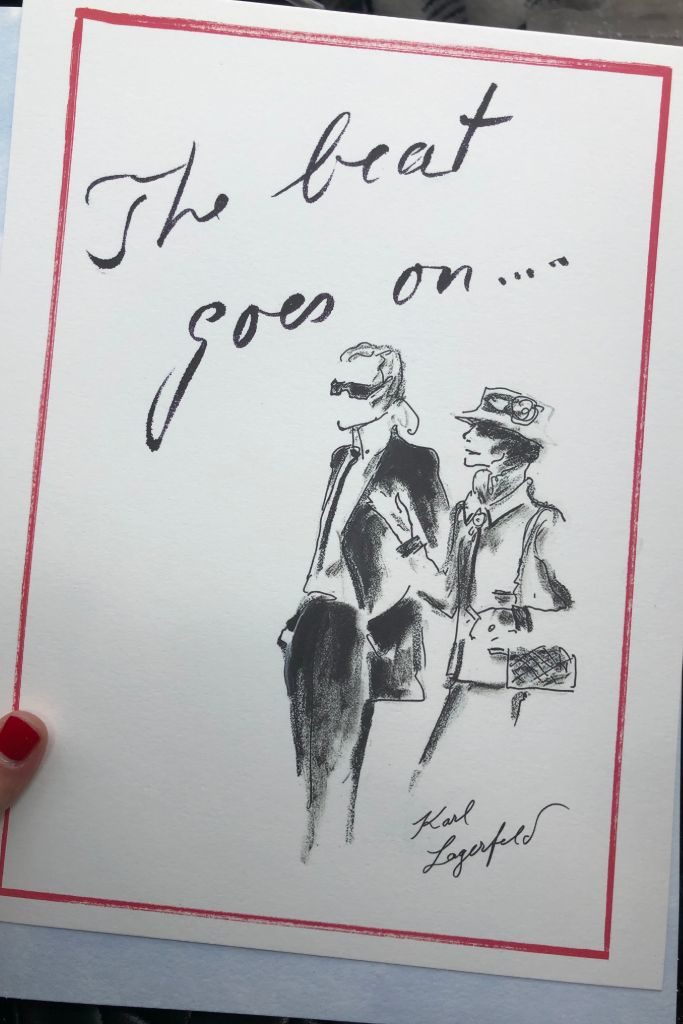 The beat
goes on.....
Karl
Lagerfeld